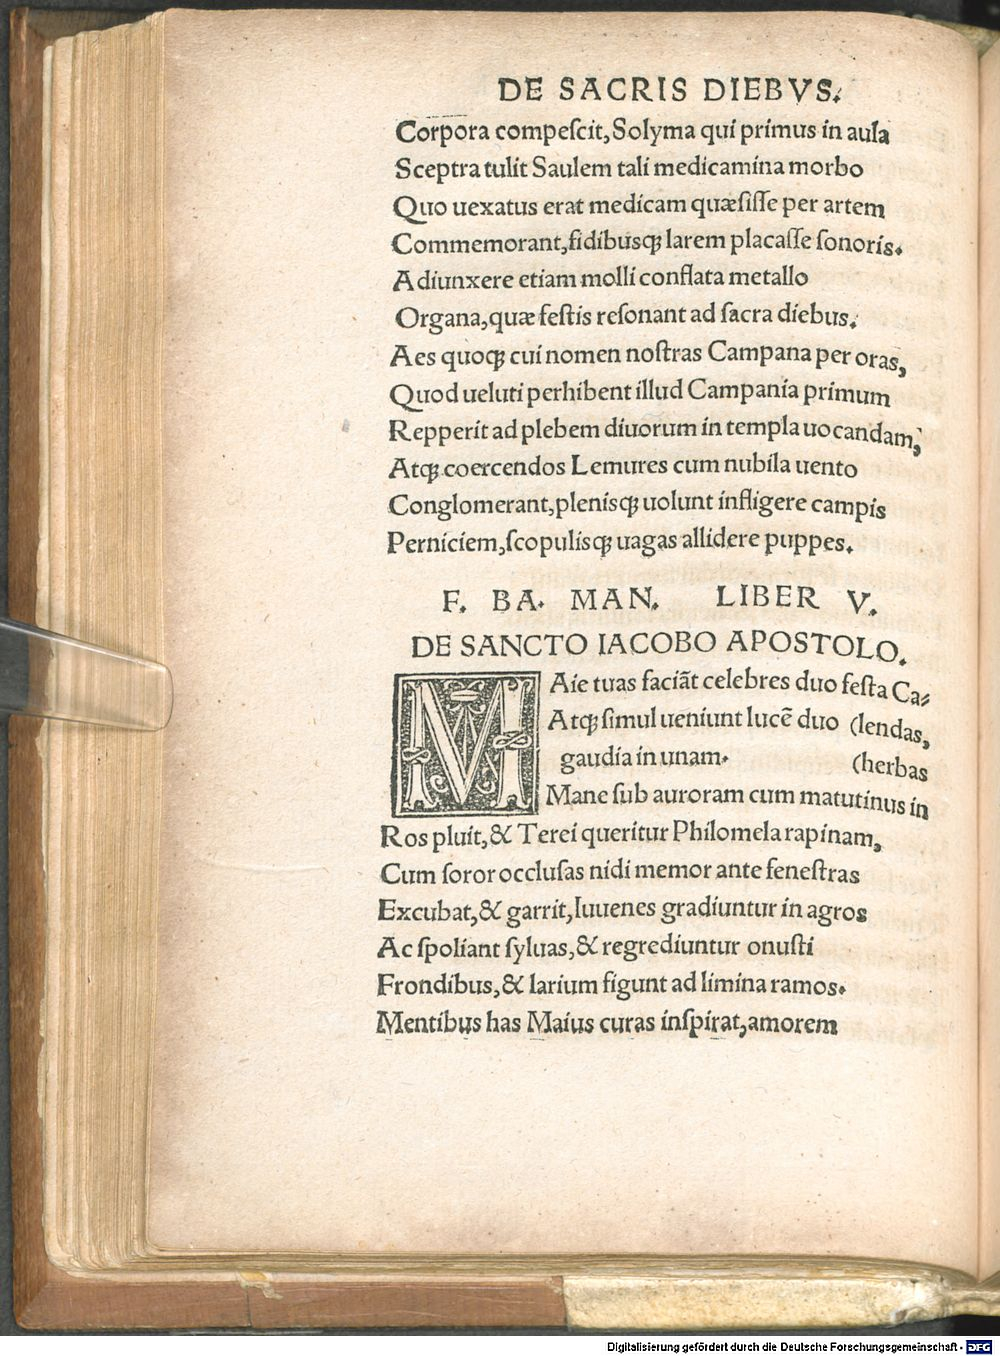 DE SACRIS DIEBVS.
Corpora compeſcit, Solyma qui primus in aula
Sceptra tulit Saulem tali medicamina morbo
Quo uexatus erat medicam quæſiſſe per artem
Commemorant, fidibusqꝫ larem placaſſe ſonoris.
Adiunxere etiam molli conflata metallo
Organa, quæ feſtis reſonant ad ſacra diebus.
Aes quoqꝫ cui nomen noſtras Campana per oras,
Quod ueluti perhibent illud Campania primum
Repperit ad plebem diuorum in templa uocandam,
Atqꝫ coercendos Lemures cum nubila uento
Conglomerant, plenisqꝫ uolunt infligere campis
Perniciem, ſcopulisqꝫ uagas allidere puppes.
F. BA. MAN. LIBER V.
DE SANCTO IACOBO APOSTOLO.
MAie tuas faciãt celebres duo feſta Ca-
Atqꝫ ſimul ueniunt lucẽ duo (lendas,
gaudia in unam. (herbas
Mane ſub auroram cum matutinus in
Ros pluit, & Terei queritur Philomela rapinam,
Cum ſoror occluſas nidi memor ante feneſtras
Excubat, & garrit, Iuuenes gradiuntur in agros
Ac ſpoliant ſyluas, & regrediuntur onuſti
Frondibus, & larium figunt ad limina ramos.
Mentibus has Maius curas inſpirat, amorem
Digitalisierung gefördert durch die Deutsche Forschungsgemeinschaft - DFG